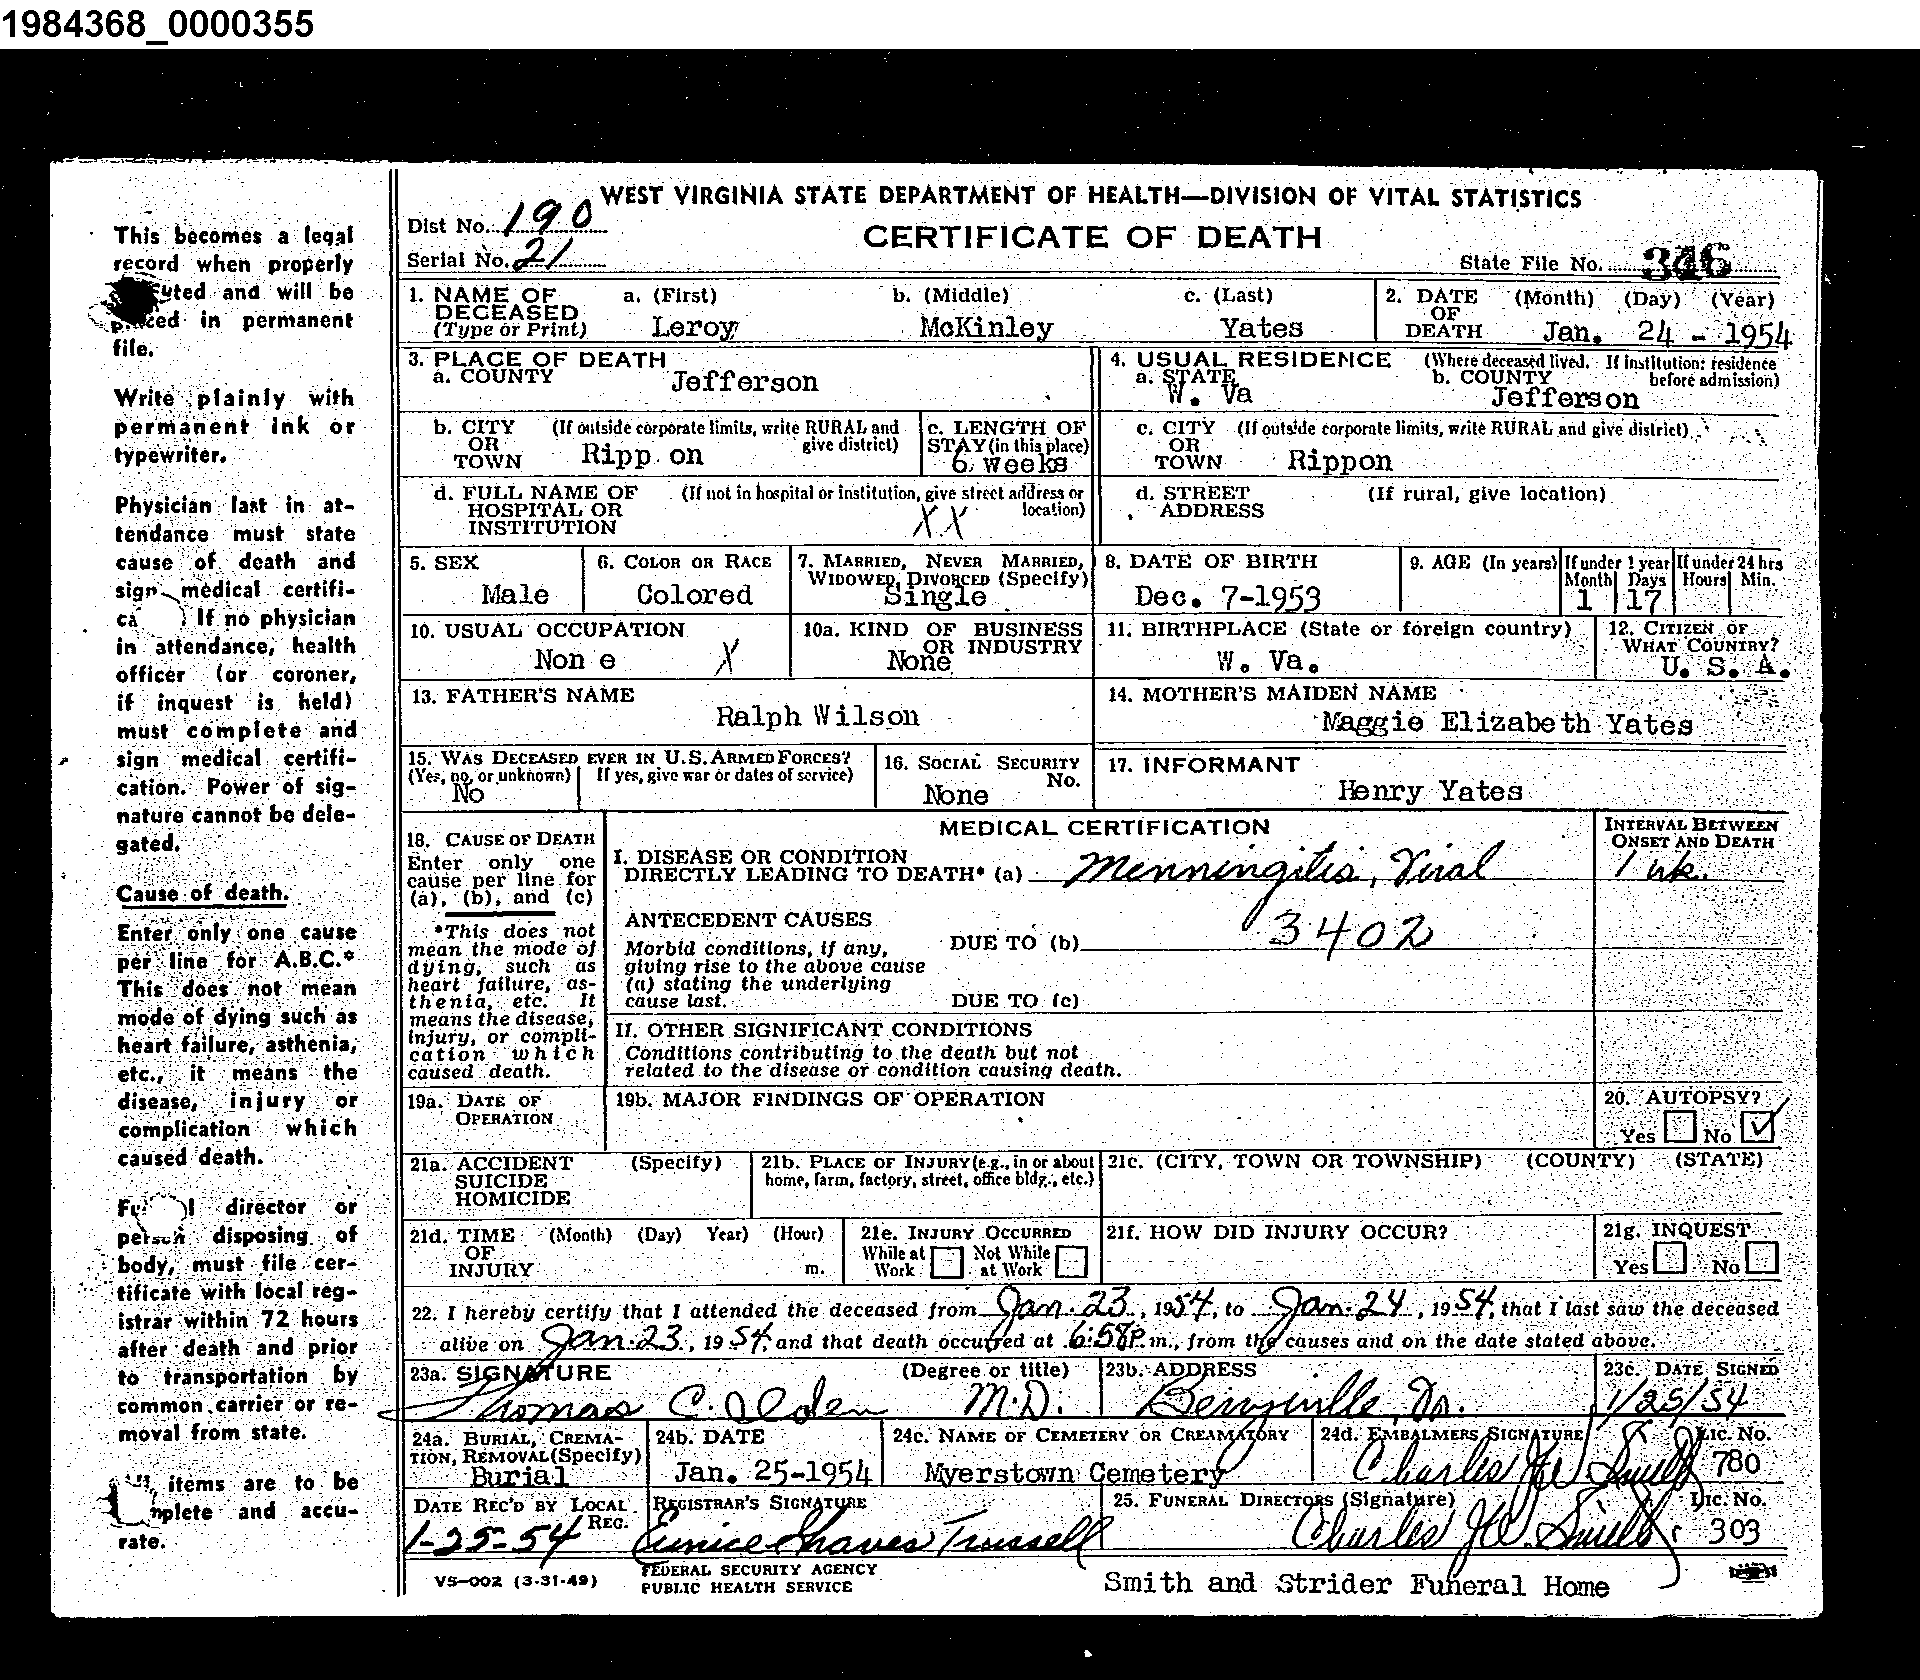 1984368_0000355
WEST VIRGINIA STATE DEPARTMENT OF HEALTH—DIVISION OF VITAL STATISTICS
Dist No. 190
CERTIFICATE OF DEATH
Serial No. 21
State File No.
This becomes a legal
record when properly
and will be
in permanent
file.
Write plainly with
permanent ink or
typewriter.
Physician last in at-
tendance must state
cause of death and
sign medical certifi-
If no physician
in attendance, health
officer (or coroner,
if inquest is held)
must complete and
sign medical certifi-
cation. Power of sig-
nature cannot be dele-
gated.
Cause of death.
Enter only one cause
per line for A.B.C.*
This does not mean
mode of dying such as
heart failure, asthenia,
etc., it means the
disease, injury or
complication which
caused death.
director or
person disposing of
body, must file cer-
tificate with local reg-
istrar within 72 hours
after death and prior
to transportation by
common carrier or re-
moval from state.
items are to be
and accu-
rate.
1. NAME OF DECEASED (Type or Print) a. (First) b. (Middle) c. (Last)
Leroy McKinley Yates
2. DATE OF DEATH (Month) (Day) (Year)
Jan. 24 - 1954
3. PLACE OF DEATH
a. COUNTY Jefferson
4. USUAL RESIDENCE (Where deceased lived. If institution: residence before admission)
a. STATE W. Va b. COUNTY Jefferson
b. CITY OR TOWN (If outside corporate limits, write RURAL and give district) Ripp on
c. LENGTH OF STAY (in this place) 6 weeks
c. CITY OR TOWN (If outside corporate limits, write RURAL and give district) Rippon
d. FULL NAME OF HOSPITAL OR INSTITUTION (If not in hospital or institution, give street address or location) XX
d. STREET ADDRESS (If rural, give location)
5. SEX Male
6. COLOR OR RACE Colored
7. MARRIED, NEVER MARRIED, WIDOWED, DIVORCED (Specify) Single
8. DATE OF BIRTH Dec. 7-1953
9. AGE (In years) If under 1 year Month 1 Days 17 If under 24 hrs Hours Min.
10. USUAL OCCUPATION Non e X
10a. KIND OF BUSINESS OR INDUSTRY None
11. BIRTHPLACE (State or foreign country) W. Va.
12. CITIZEN OF WHAT COUNTRY? U. S. A.
13. FATHER'S NAME Ralph Wilson
14. MOTHER'S MAIDEN NAME Maggie Elizabeth Yates
15. WAS DECEASED EVER IN U.S. ARMED FORCES?
(Yes, no, or unknown) No If yes, give war or dates of service)
16. SOCIAL SECURITY No. None
17. INFORMANT Henry Yates
18. CAUSE OF DEATH
Enter only one
cause per line for
(a), (b), and (c)
*This does not
mean the mode of
dying, such as
heart failure, as-
thenia, etc. It
means the disease,
injury, or compli-
cation which
caused death.
MEDICAL CERTIFICATION
INTERVAL BETWEEN ONSET AND DEATH
I. DISEASE OR CONDITION
DIRECTLY LEADING TO DEATH* (a) Menningitis, Viral 1 wk.
ANTECEDENT CAUSES
Morbid conditions, if any,
giving rise to the above cause
(a) stating the underlying
cause last.
DUE TO (b) 3402
DUE TO (c)
II. OTHER SIGNIFICANT CONDITIONS
Conditions contributing to the death but not
related to the disease or condition causing death.
19a. DATE OF OPERATION
19b. MAJOR FINDINGS OF OPERATION
20. AUTOPSY?
Yes No ✓
21a. ACCIDENT SUICIDE HOMICIDE (Specify)
21b. PLACE OF INJURY (e.g., in or about home, farm, factory, street, office bldg., etc.)
21c. (CITY, TOWN OR TOWNSHIP) (COUNTY) (STATE)
21d. TIME OF INJURY (Month) (Day) Year) (Hour) m.
21e. INJURY OCCURRED While at Work Not While at Work
21f. HOW DID INJURY OCCUR?
21g. INQUEST Yes No
22. I hereby certify that I attended the deceased from Jan. 23, 1954, to Jan. 24, 1954, that I last saw the deceased
alive on Jan. 23, 1954, and that death occurred at 6:58P.m., from the causes and on the date stated above.
23a. SIGNATURE (Degree or title)
Thomas C. Olden M.D.
23b. ADDRESS
23c. DATE SIGNED 1/25/54
24a. BURIAL, CREMA-TION, REMOVAL (Specify) Burial
24b. DATE Jan. 25-1954
24c. NAME OF CEMETERY OR CREAMATORY Myerstown Cemetery
24d. EMBALMERS SIGNATURE Lic. No.
Charles 780
DATE REC'D BY LOCAL REG. 1-25-54
REGISTRAR'S SIGNATURE Eunice Shaves Trussell
25. FUNERAL DIRECTORS (Signature) Lic. No.
Charles 303
VS-002 (3-31-49)
FEDERAL SECURITY AGENCY
PUBLIC HEALTH SERVICE
Smith and Strider Funeral Home